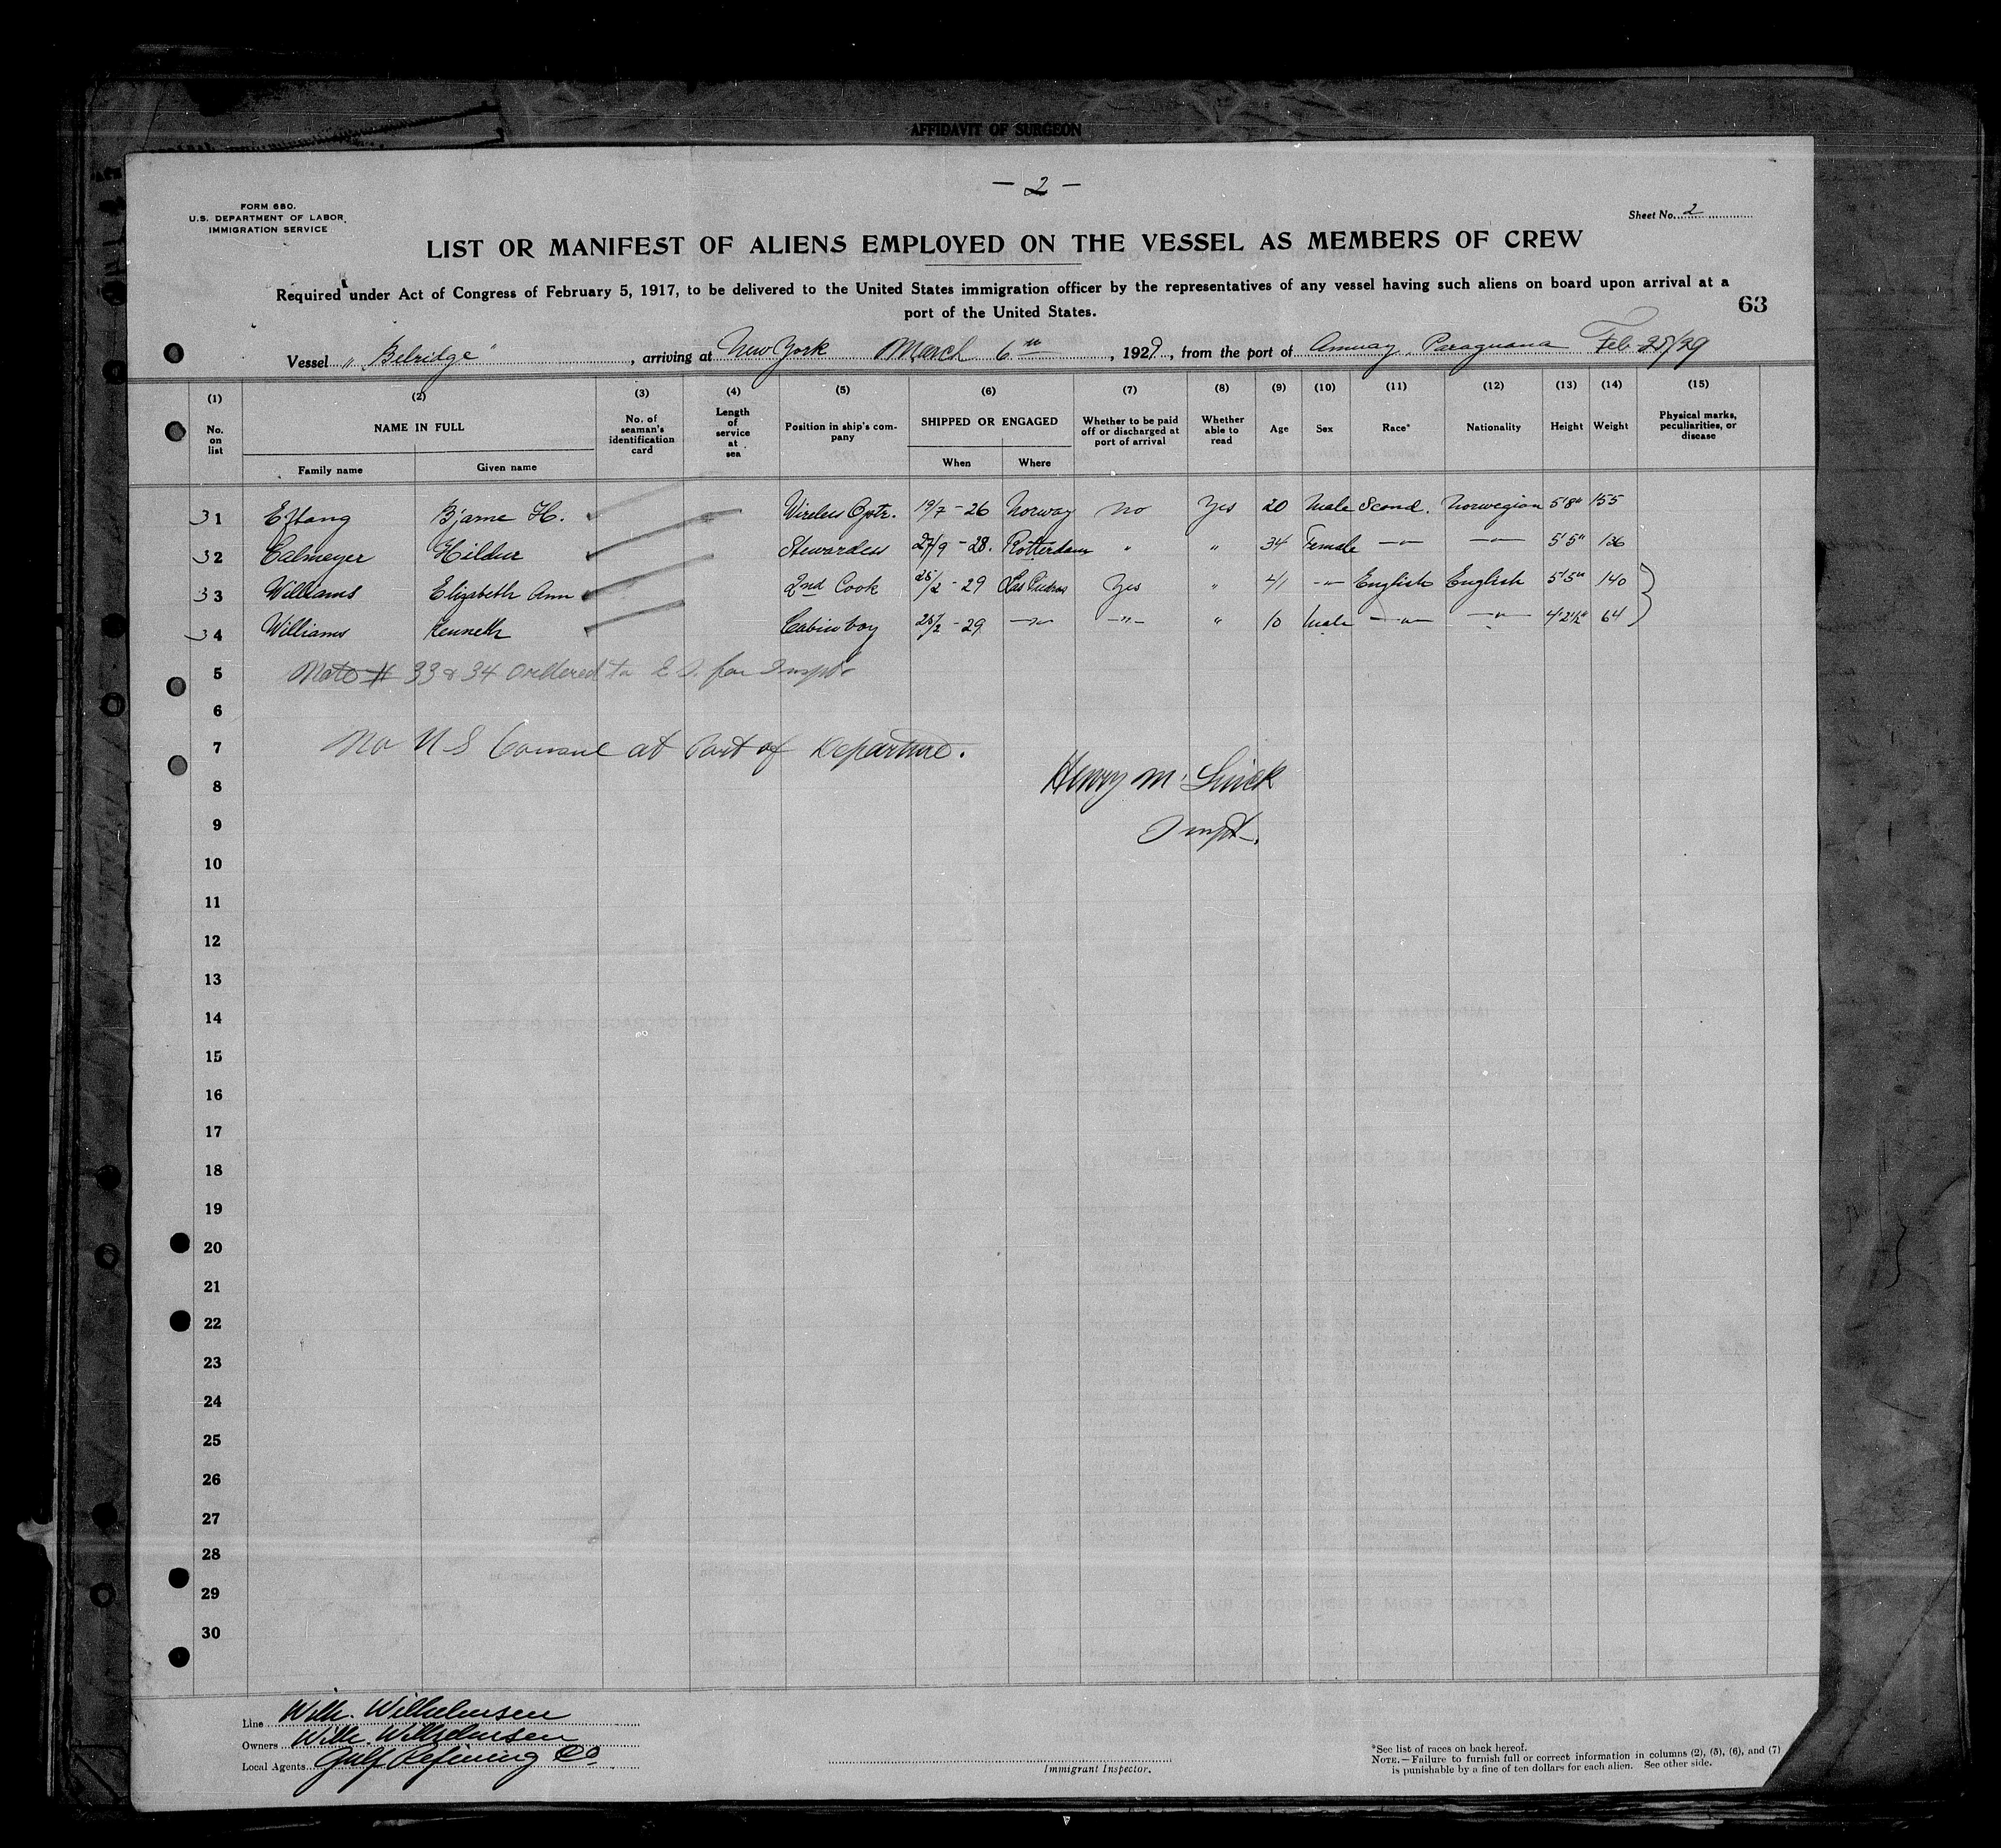 AFFIDAVIT OF SURGEON
— 2 —
FORM 680.
U.S. DEPARTMENT OF LABOR
IMMIGRATION SERVICE
Sheet No. 2
LIST OR MANIFEST OF ALIENS EMPLOYED ON THE VESSEL AS MEMBERS OF CREW
Required under Act of Congress of February 5, 1917, to be delivered to the United States immigration officer by the representatives of any vessel having such aliens on board upon arrival at a
port of the United States.
63
Vessel "Belridge", arriving at New York March 6th, 1929, from the port of Amuay, Paraguana Feb 25/29
(1) (2) (3) (4) (5) (6) (7) (8) (9) (10) (11) (12) (13) (14) (15)
No. on list NAME IN FULL No. of seaman's identification card Length of service at sea Position in ship's company SHIPPED OR ENGAGED Whether to be paid off or discharged at port of arrival Whether able to read Age Sex Race* Nationality Height Weight Physical marks, peculiarities, or disease
Family name Given name When Where
31 Eftang Bjarne H. Wireless Optr. 19/7 - 26 Norway No Yes 20 Male Scand. Norwegian 5'8" 155
32 Calmeyer Hildur Stewardess 27/9 - 28. Rotterdam " " 34 Female —"— —"— 5'5" 136
33 Williams Elizabeth Ann 2nd Cook 25/2 - 29 Las Piedras Yes " 41 -"- English English 5'5" 140
34 Williams Kenneth Cabin boy 25/2 - 29 —"— —"— " 10 Male —"— —"— 4'2½" 64
5 Note # 33 & 34 ordered to E.I. for Inspt.
6
7 No U S Consul at Port of Departure.
8 Henry M.
9 Inspt.
10
11
12
13
14
15
16
17
18
19
20
21
22
23
24
25
26
27
28
29
30
Line Wilh. Wilhelmsen
Owners Wilh. Wilhelmsen
Local Agents Gulf Refining Co.
Immigrant Inspector.
*See list of races on back hereof.
NOTE.—Failure to furnish full or correct information in columns (2), (5), (6), and (7)
is punishable by a fine of ten dollars for each alien. See other side.